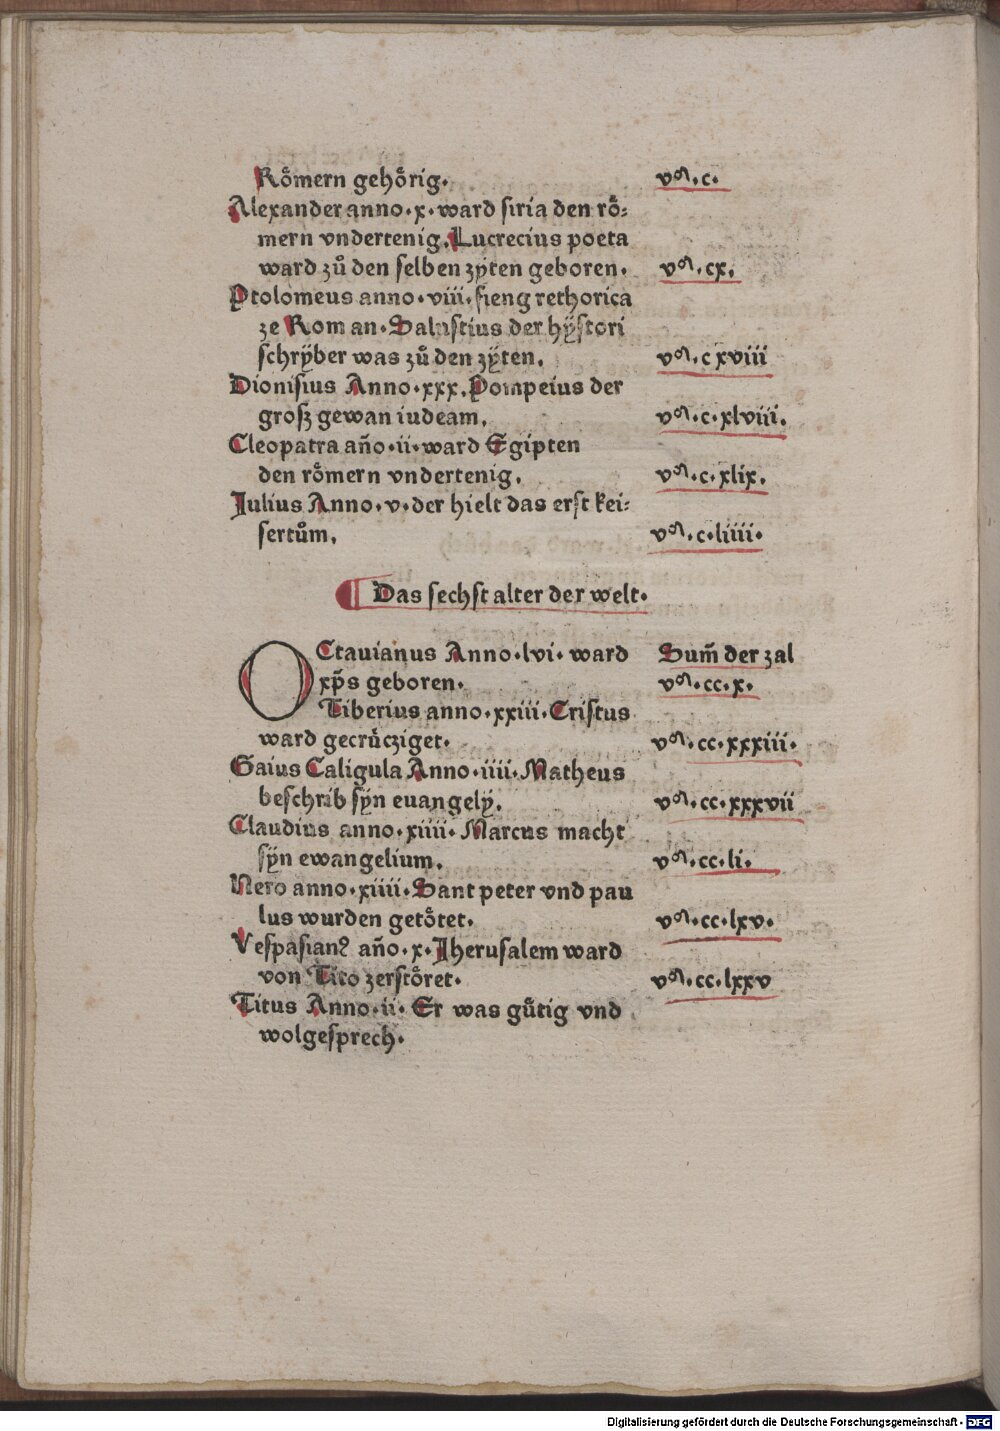 Roͤmern gehoͤrig. vᵒⁿ.c.
Alexander anno.x.ward siria den roͤ:
mern vndertenig. Lucrecius poeta
ward zuͦ den selben zÿten geboren. vᵒⁿ.cx.
Ptolomeus anno.viii.fieng rethorica
ze Rom an. Salustius der hÿstori
schrÿber was zuͦ den zÿten. vᵒⁿ.c xviii
Dionisius Anno.xxx.Pompeius der
grosz gewan iudeam. vᵒⁿ.c.xlviii.
Cleopatra an̄o.ii.ward Egipten
den roͤmern vndertenig. vᵒⁿ.c.xlix.
Julius Anno.v.der hielt das erst kei:
sertuͦm. vᵒⁿ.c.liiii.
Das sechst alter der welt.
OCtauianus Anno.lvi.ward Sum̄ der zal
xp̄s geboren. vᵒⁿ.cc.x.
Tiberius anno.xxiii.Cristus
ward gecruͤcziget. vᵒⁿ.cc.xxxiii.
Gaius Caligula Anno.iiii.Matheus
beschrib sÿn euangelÿ. vᵒⁿ.cc.xxxvii
Claudius anno.xiiii.Marcus macht
sÿn ewangelium. vᵒⁿ.cc.li.
Nero anno.xiiii.Sant peter vnd pau
lus wurden getoͤtet. vᵒⁿ.cc.lxv.
Vespasianꝰ an̄o.x.Jherusalem ward
von Tito zerstoͤret. vᵒⁿ.cc.lxxv
Titus Anno.ii.Er was guͤtig vnd
wolgesprech.
Digitalisierung gefördert durch die Deutsche Forschungsgemeinschaft - DFG